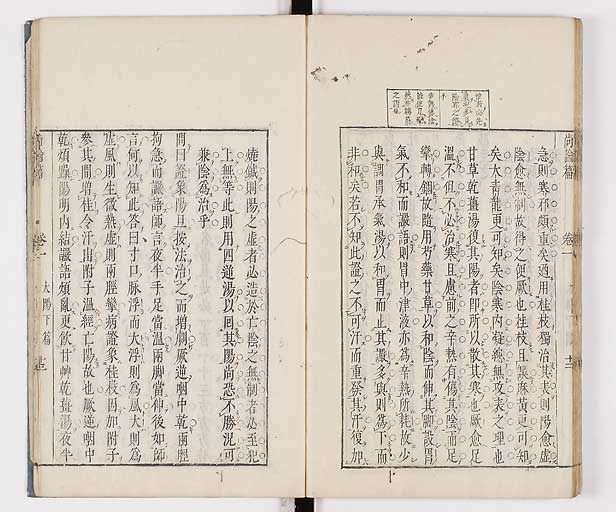 尚論篇 卷一 十二
急則寒邪頗重矣適用桂枝獨治其表則陽愈虛
陰愈無制故得之便厥也桂枝且誤麻黃更可知
矣大青龍更可知矣陰寒內凝總無攻表之理也
甘草乾薑湯復其陽者即所以散其寒也厥愈足
溫不但不必治寒且慮前之辛熱有傷其陰而足
攣轉錮故隨用芍藥甘草以和陰而伸其脚設胃
氣不和而讝語則胃中津液亦為辛熱所耗故少
與調胃承氣湯以和胃而止其讝多與則為下而
非和矣若不知此證之不可汗而重發其汗復加
燒鍼則陽之虛者必造於亡陰之無制者必至犯
上無等此則用四逆湯以回其陽尚恐不勝況可
兼陰為治乎
問曰證象陽旦按法治之而增劇厥逆咽中乾兩脛
拘急而讝語師言夜半手足當溫兩脚當伸後如師
言何以知此答曰寸口脉浮而大浮則為風大則為
虛風則生微熱虛則兩脛攣病證象桂枝因加附子
參其間增桂令汗出附子溫經亡陽故也厥逆咽中
乾煩躁陽明內結讝語煩亂更飲甘艸乾薑湯夜半
尚論篇 卷一 太陽下篇 十三